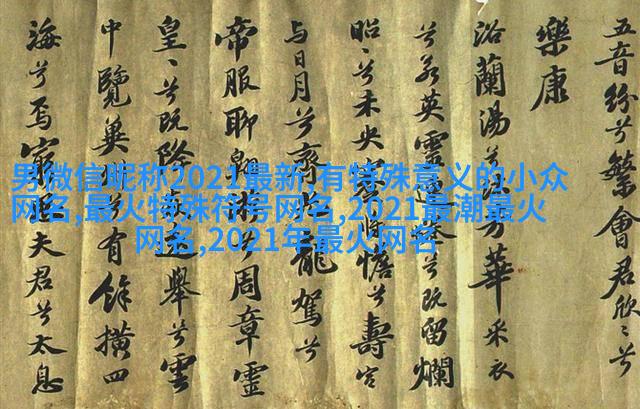 五音紛兮繁會君欣〻兮
樂康
浴蘭湯兮沐芳華采衣
兮若英靈兮既留爛
昭〻兮未央憺兮壽宮
与日月兮齊龍駕兮
帝服聊翱兮周章靈
皇〻兮既降舉兮雲
中覽冀兮有餘橫四
海兮焉窮夫君兮太息
男微信昵称2021最新,有特殊意义的小众
网名,最火特殊符号网名,2021最潮最火
网名,2021年最火网名